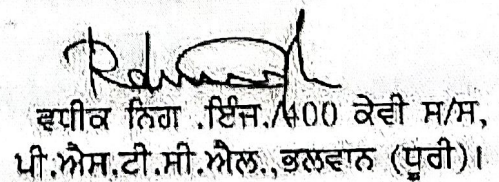 ਵਧੀਕ ਨਿਗ .ਇੰਜ./400 ਕੇਵੀ ਸ/ਸ,
ਪੀ.ਐਸ.ਟੀ.ਸੀ.ਐਲ.,ਭਲਵਾਨ (ਧੂਰੀ)।